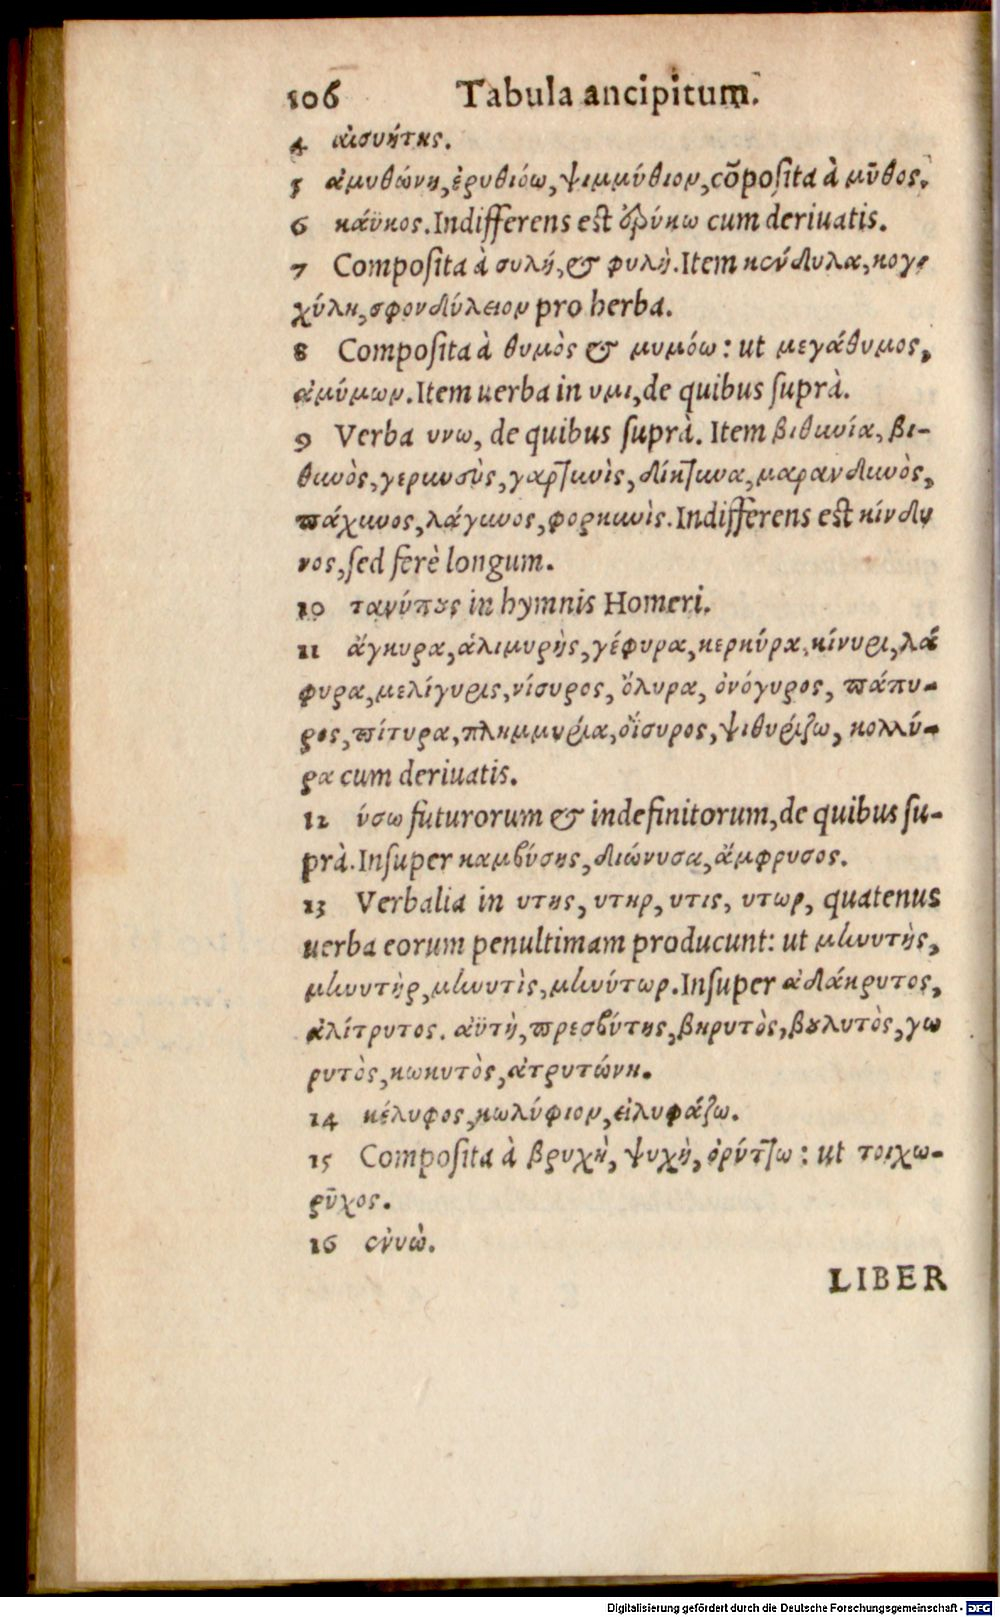 106 Tabula ancipitum.
4 αἰσυήτης.
5 ἀμυθώνη, ἐρυθιόω, ψιμμύθιον, cõposita à μῦθος.
6 κάϋκος. Indifferens est ὀρύκω cum deriuatis.
7 Composita à συλή, & φυλή. Item κονδύλα, κογ-
χύλη, σφονδύλειον pro herba.
8 Composita à θυμὸς & μυμόω: ut μεγάθυμος,
ἀμύμων. Item uerba in υμι, de quibus suprà.
9 Verba υνω, de quibus suprà. Item βιθυνία, βι-
θυνὸς, γερυνσὺς, γαρτυνὶς, δίκτυνα, μαρανδυνὸς,
πάχυνος, λάγυνος, φορκυνὶς. Indifferens est κίνδυ
νος, sed ferè longum.
10 τανύπους in hymnis Homeri.
11 ἄγκυρα, ἁλιμυρὴς, γέφυρα, κερκύρα, κίνυρι, λά
φυρα, μελίγυρις, νίσυρος, ὄλυρα, ὀνόγυρος, πάπυ-
ρος, πίτυρα, πλημμυρία, οἴσυρος, ψιθυρίζω, κολλύ-
ρα cum deriuatis.
12 ύσω futurorum & indefinitorum, de quibus su-
prà. Insuper καμβύσης, διώνυσα, ἄμφρυσος.
13 Verbalia in υτης, υτηρ, υτις, υτωρ, quatenus
uerba eorum penultimam producunt: ut μηνυτὴς,
μηνυτὴρ, μηνυτὶς, μηνύτωρ. Insuper ἀδάκρυτος,
ἀλίτρυτος. αϋτὴ, πρεσβύτης, βηρυτὸς, βουλυτὸς, γω
ρυτὸς, κωκυτὸς, ἀτρυτώνη.
14 κέλυφος, κωλύφιον, εἰλυφάζω.
15 Composita à βρυχὴ, ψυχὴ, ὀρύττω: ut τοιχω-
ρῦχος.
16 ἐνυὼ.
LIBER
Digitalisierung gefördert durch die Deutsche Forschungsgemeinschaft - DFG